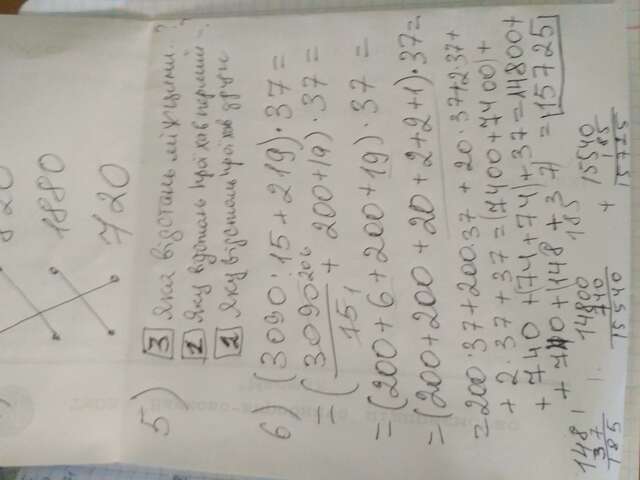 1880
720
5) 3 Яка відстань між ними..?
1 Яку відстань проїхав перший-?
2 Яку відстань проїхав друге
6) (3090:15+219)·37=
=(3090 206/15 1 + 200+19)·37=
=(200+6+200+19)·37=
=(200+200+20+2+2+1)·37=
=200·37+200·37+20·37+2·37+
+2·37+37=(7400+7400)+
+740+(74+74)+37=14800+
+740+(148+37)=15725
148
37
185
14800
740
15540
185
+ 15540
185
15725